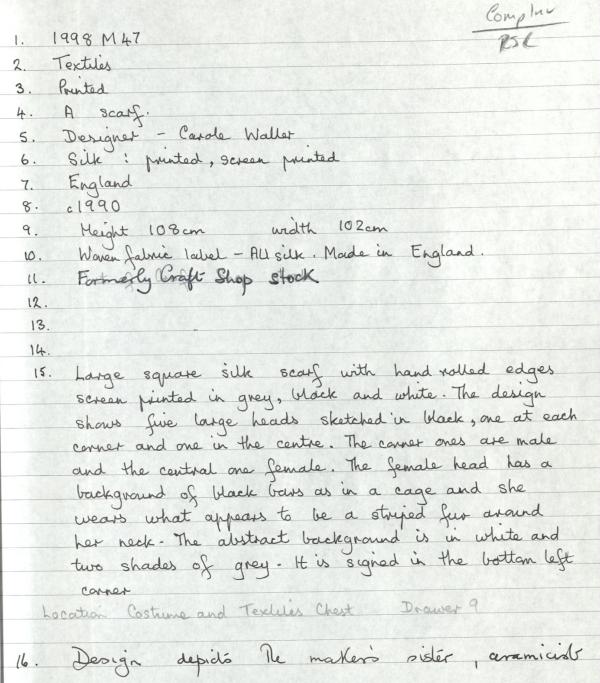 Comp Inv
RSL
1. 1998 M 47
2. Textiles
3. Printed
4. A scarf.
5. Designer - Carole Waller
6. Silk : printed, screen printed
7. England
8. c1990
9. Height 108cm width 102cm
10. Woven fabric label - All silk. Made in England.
11. Formerly Craft Shop stock
12.
13.
14.
15. Large square silk scarf with hand rolled edges
screen printed in grey, black and white. The design
shows five large heads sketched in black, one at each
corner and one in the centre. The corner ones are male
and the central one female. The female head has a
background of black bars as in a cage and she
wears what appears to be a striped fur around
her neck. The abstract background is in white and
two shades of grey. It is signed in the bottom left
corner
Location Costume and Textiles Chest Drawer 9
16. Design depicts the maker's sister, ceramicist